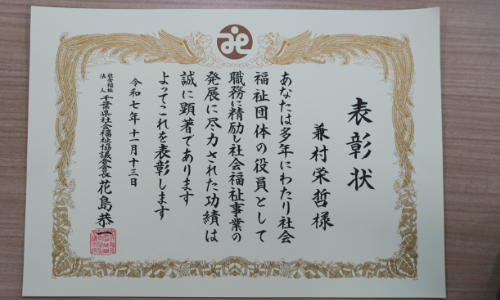 表彰状
兼村栄哲様
あなたは多年にわたり社会
福祉団体の役員として
職務に精励し社会福祉事業の
発展に尽力された功績は
誠に顕著であります
よってこれを表彰します
令和七年十一月十三日
社会福祉法人 千葉県社会福祉協議会会長 花島恭一